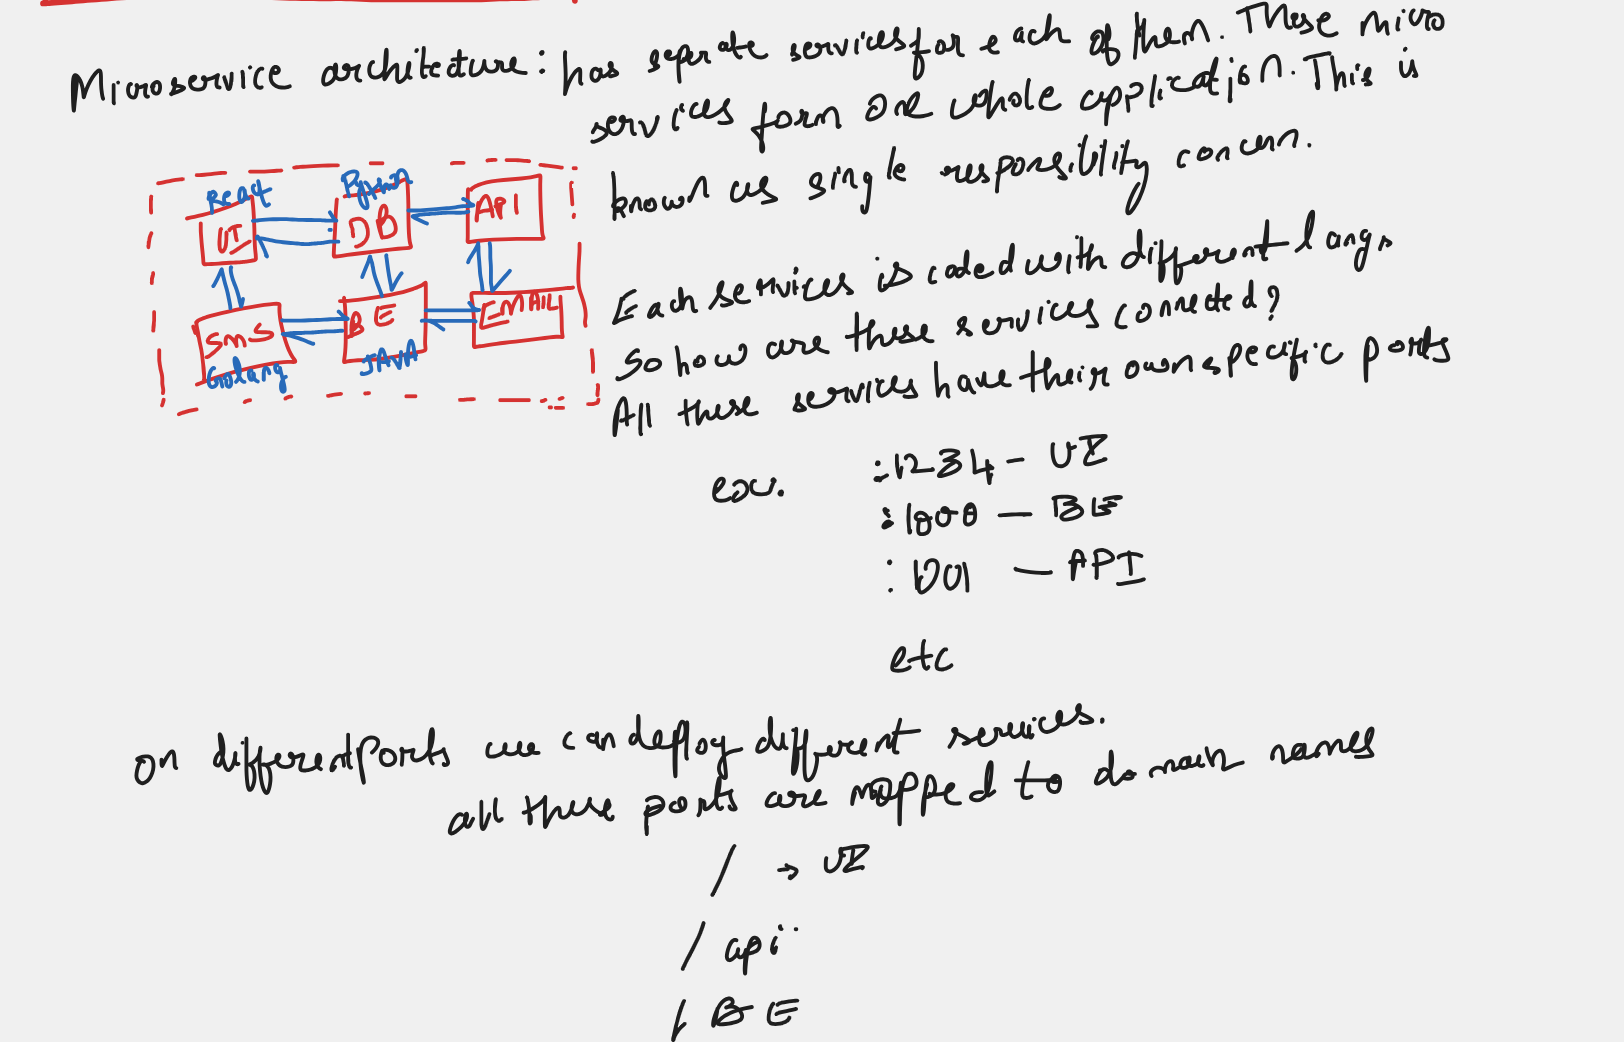 Microservice architecture: has seperate services for each of them. These micro
services form one whole application. This is
known as single responsibility concern.
React
Python
UI
DB
API
SMS
BE
EMAIL
Golang
JAVA
Each services is coded with different lang.
So how are these services connected?
All these services have their own specific ports
ex.
:1234 - UI
:1000 — BE
:1001 — API
etc
on different ports we can deploy different services.
all these ports are mapped to domain names
/ → UI
/ api
/ BE